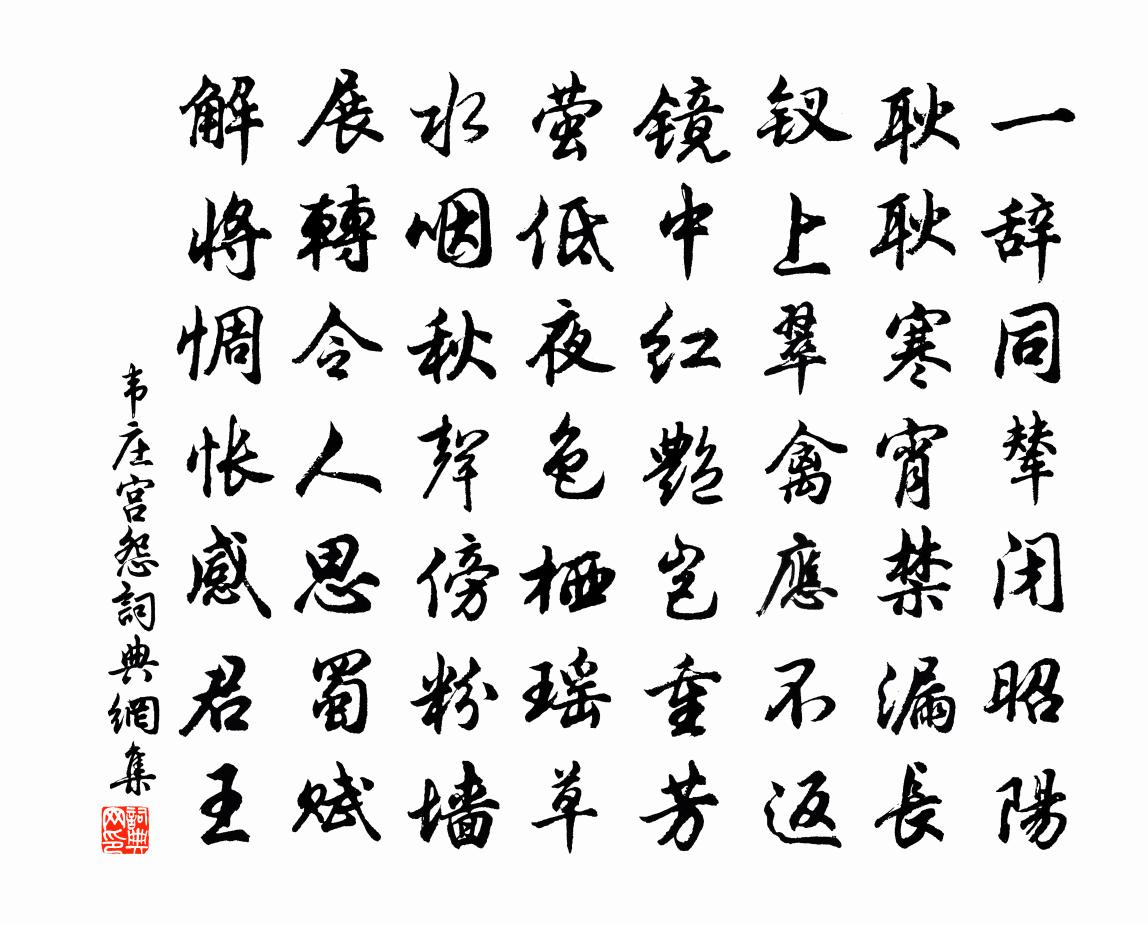 一辞同辇闭昭陽
耿耿寒宵禁漏長
钗上翠禽應不返
镜中红艷岂重芳
萤低夜色栖瑶草
水咽秋聲傍粉墙
展轉令人思蜀赋
解將惆怅感君王
韦庄宫怨詞典網集
詞典网印